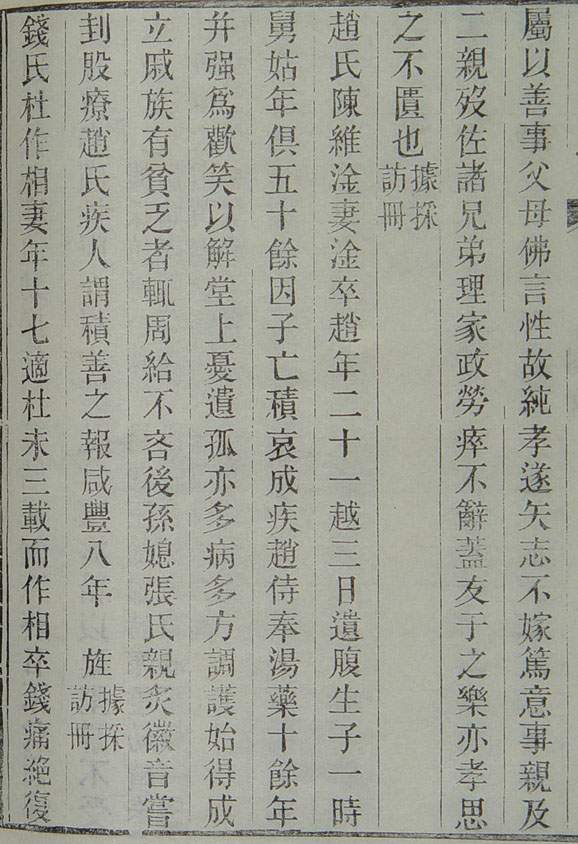 屬以善事父母佛言性故純孝遂矢志不嫁篤意事親及
二親歿佐諸兄弟理家政勞瘁不辭蓋友于之樂亦孝思
之不匱也據採訪冊
趙氏陳維淦妻淦卒趙年二十一越三日遺腹生子一時
舅姑年俱五十餘因子亡積哀成疾趙侍奉湯藥十餘年
并强爲歡笑以解堂上憂遺孤亦多病多方調護始得成
立戚族有貧乏者輒周給不吝後孫媳張氏親炙徽音嘗
刲股療趙氏疾人謂積善之報咸豐八年 旌據採訪冊
錢氏杜作相妻年十七適杜未三載而作相卒錢痛絶復